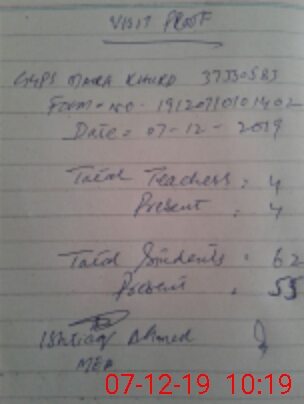 VISIT PROOF
GGPS MAIRA KHURD 37330583
Form No - 19120710101402
Date = 07-12-2019
Total Teachers: 4
Present : 4
Total Students : 62
Present . 55
Ishtiaq Ahmed
MEA
07-12-19 10:19